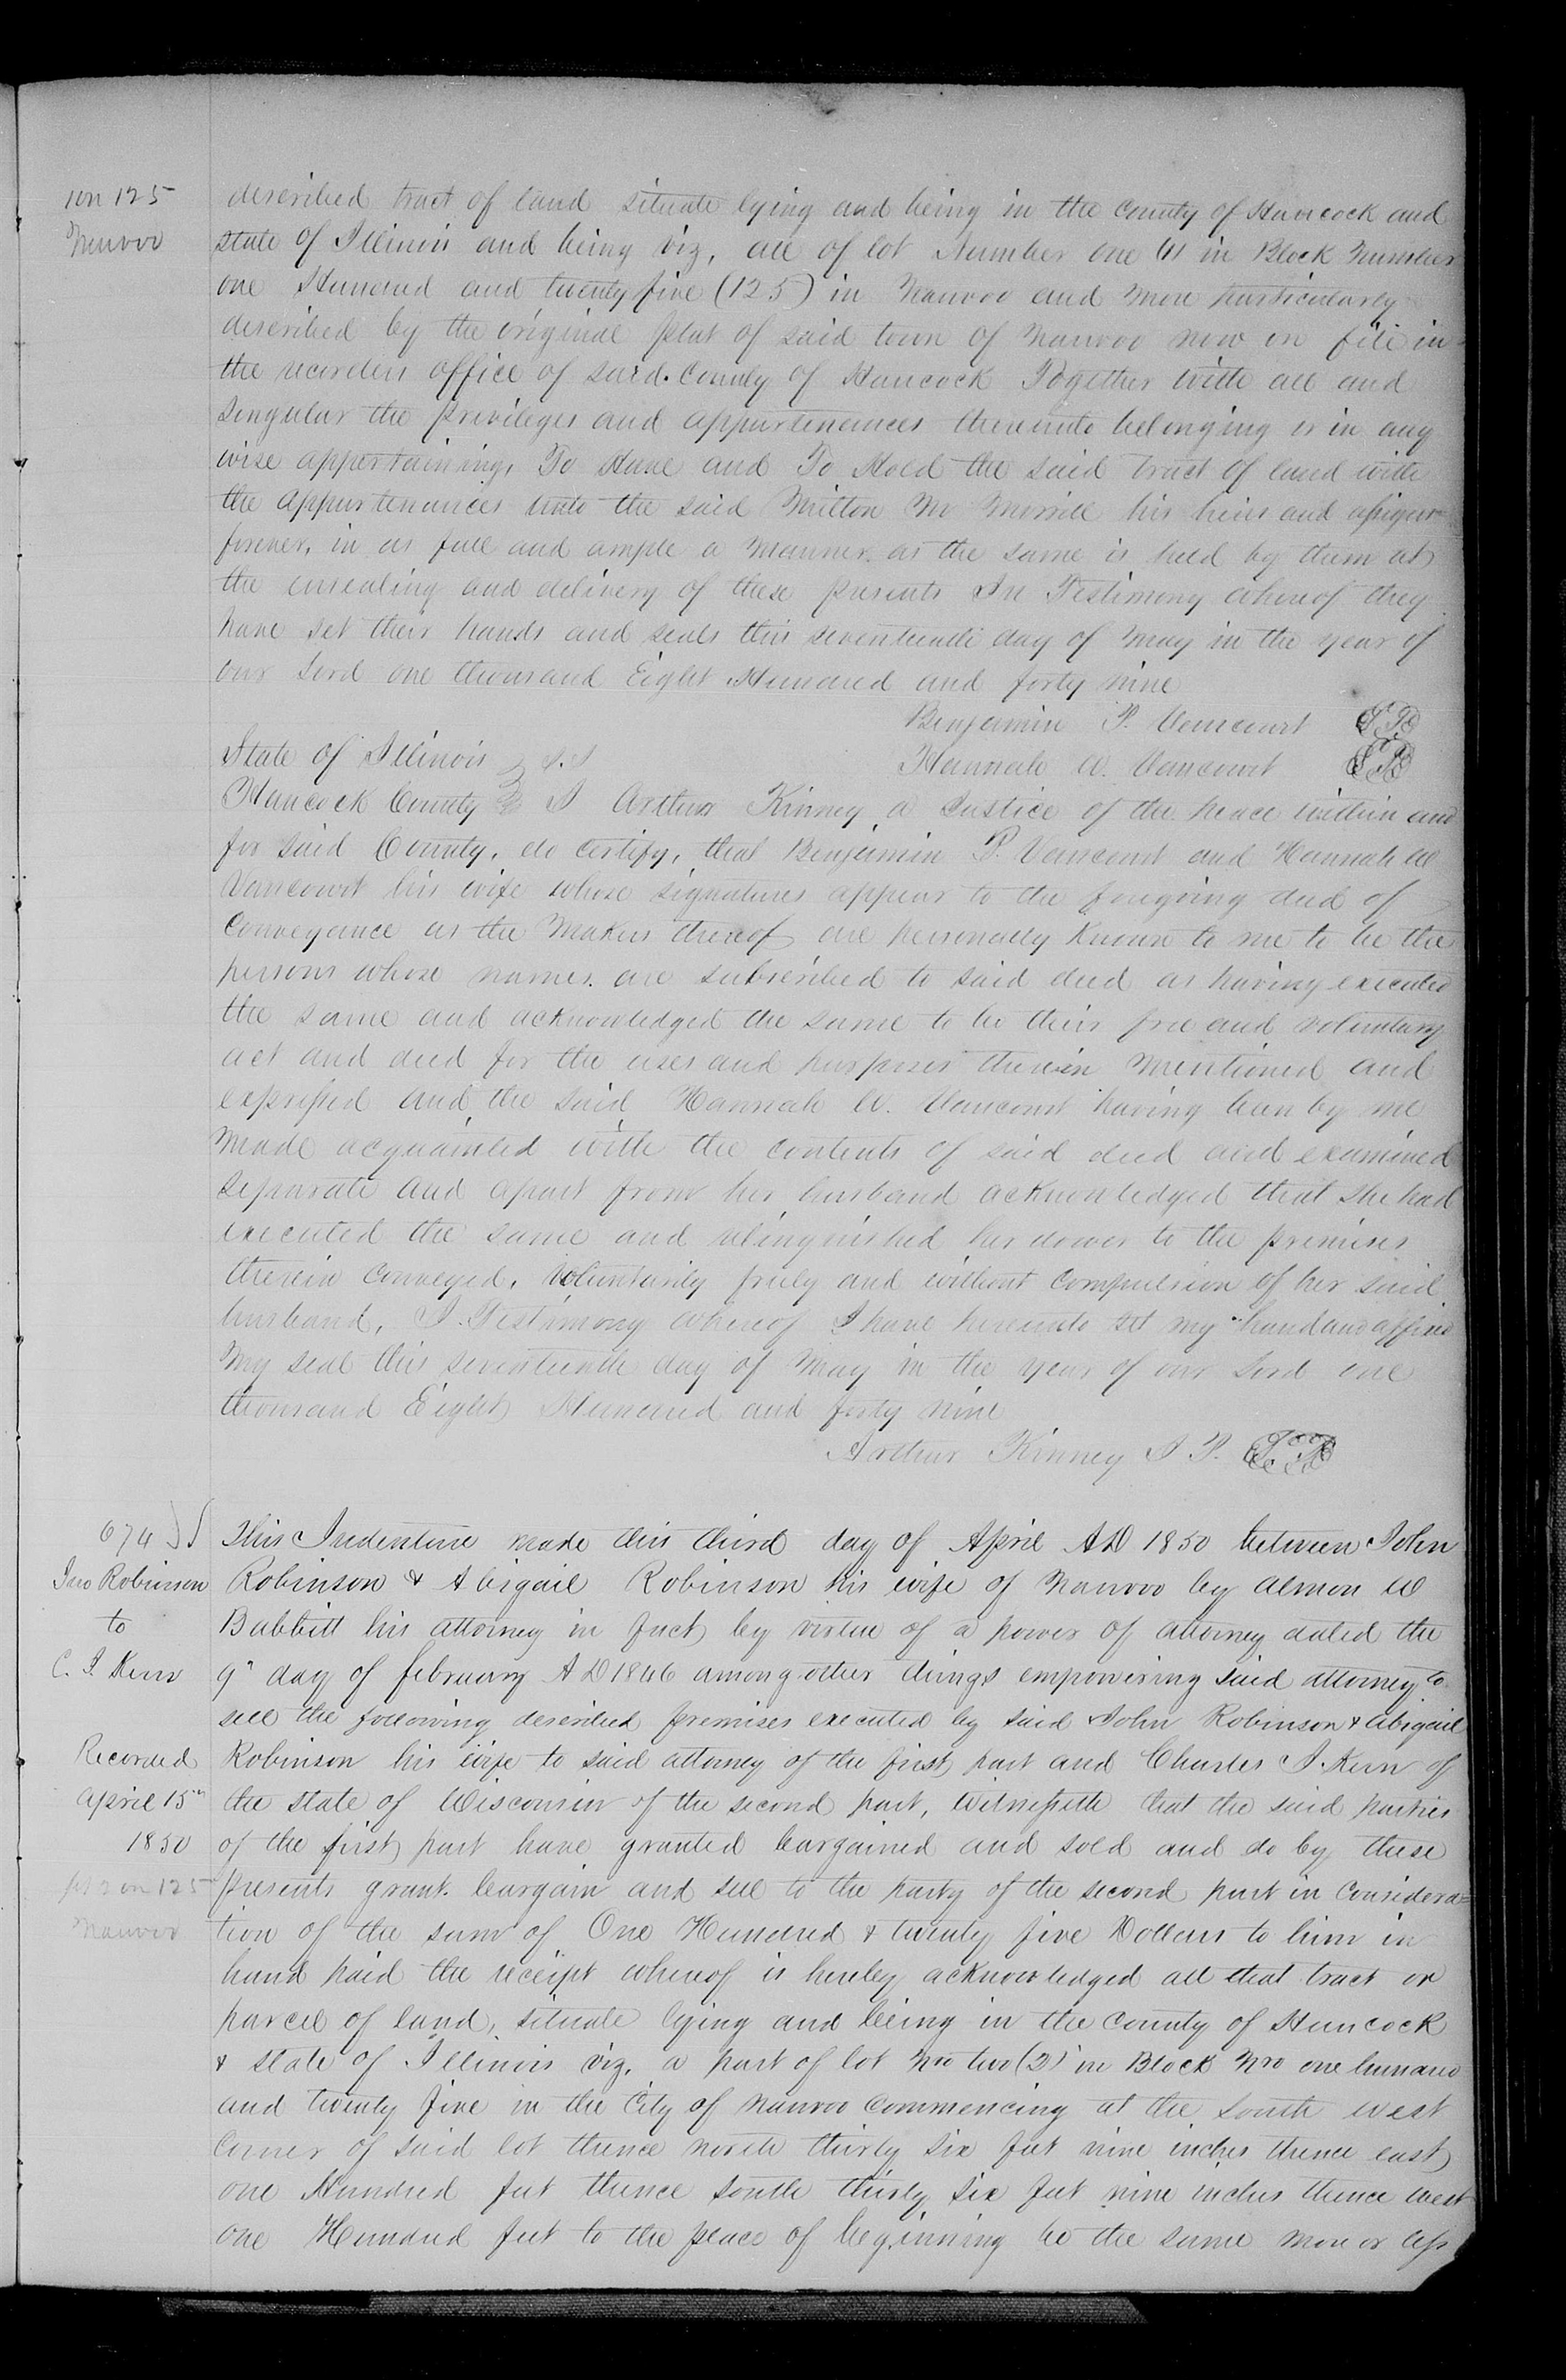 1 on 125
Nauvoo
described tract of land situate lying and being in the county of Hancock and
state of Illinois and being viz, all of lot Number one (1) in Block Number
one Hundred and twenty five (125) in Nauvoo and more particularly
described by the original plat of said town of Nauvoo now on file in
the recorders office of said County of Hancock Together with all and
singular the privileges and appurtenances thereunto belonging or in any
wise appertaining, To Have and To Hold the said tract of land with
the appurtenances unto the said Milton M Morrill his heirs and assigns
forever, in as full and ample a manner as the same is held by them at
the ensealing and delivery of these presents In Testimony whereof they
have set their hands and seals this seventeenth day of May in the year of
our Lord one thousand Eight Hundred and forty nine
Benjamin P. Vancourt
State of Illinois } S.S
Hannah W. Vancourt
Hancock County } I Arthur Kinney a Justice of the peace within and
for said County, do certify, that Benjamin P. Vancourt and Hannah W
Vancourt his wife whose signatures appear to the foregoing deed of
Conveyance as the Makers thereof are personally known to me to be the
persons whose names are subscribed to said deed as having executed
the same and acknowledged the same to be their free and voluntary
act and deed for the uses and purposes therein mentioned and
expressed and the said Hannah W. Vancourt having been by me
made acquainted with the contents of said deed and examined
separate and apart from her husband acknowledged that she had
executed the same and relinquished her dower to the premises
therein conveyed, voluntarily freely and without compulsion of her said
husband, I Testimony whereof I have hereunto set my hand and affixed
my seal this seventeenth day of May in the year of our Lord one
thousand Eight Hundred and forty nine
Arthur Kinney J P.
674
Jno Robinson
to
C. I. Kern
Recorded
April 15th
1850
pt 2 on 125
Nauvoo
This Indenture made this third day of April AD 1850 between John
Robinson & Abigail Robinson his wife of Nauvoo by Almon W
Babbitt his attorney in fact by virtue of a power of attorney dated the
9" day of february AD 1846 among other things empowering said attorney to
sell the following described premises executed by said John Robinson & Abigail
Robinson his wife to said attorney of the first part and Charles I. Kern of
the state of Wisconsin of the second part, Witnesseth that the said parties
of the first part have granted bargained and sold and do by these
presents grant bargain and sell to the party of the second part in Considera=
tion of the sum of One Hundred & twenty five Dollars to him in
hand paid the receipt whereof is hereby acknowledged all that tract or
parcel of land, situate lying and being in the county of Hancock
& state of Illinois viz, a part of lot Nro two (2) in Block Nro one hundred
and twenty five in the City of Nauvoo Commencing at the South West
Corner of said lot thence north thirty six feet nine inches thence east
one Hundred feet thence South thirty six feet nine inches thence west
one Hundred feet to the place of beginning be the same more or less